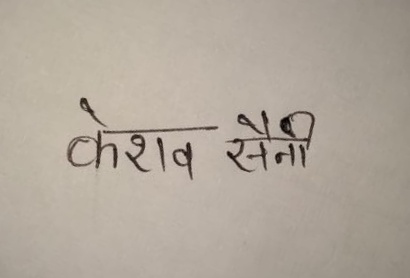 केशव सैनी